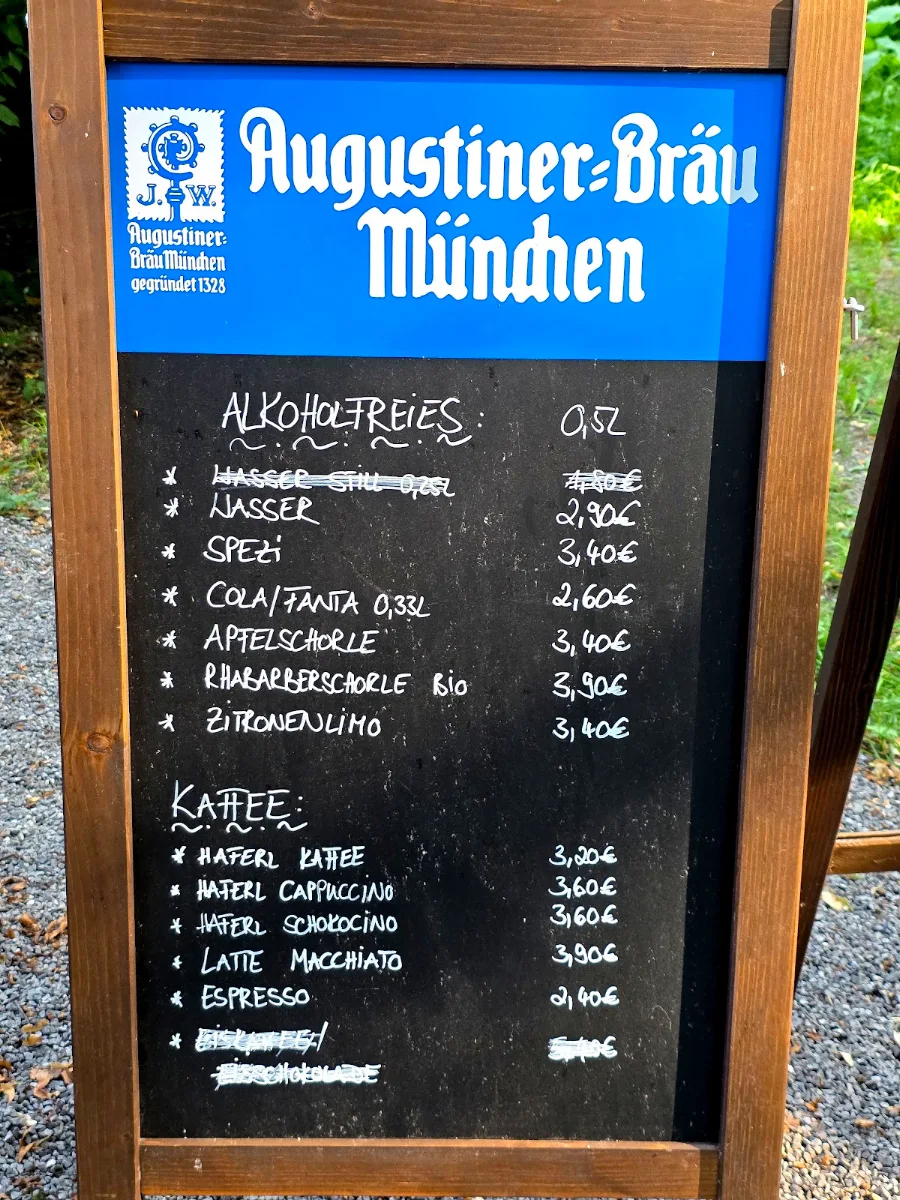 Augustiner-Bräu
München
J. W.
Augustiner-
Bräu München
gegründet 1328
ALKOHOLFREIES: 0,5L
* WASSER STILL 0,25L 1,80€
* WASSER 2,90€
* SPEZi 3,40€
* COLA/FANTA 0,33L 2,60€
* APFELSCHORLE 3,40€
* RHABARBERSCHORLE Bio 3,90€
* ZiTRONENLiMO 3,40€
KAFFEE:
* HAFERL KAFFEE 3,20€
* HAFERL CAPPUCCINO 3,60€
* HAFERL SCHOKOCINO 3,60€
* LATTE MACCHIATO 3,90€
* ESPRESSO 2,40€
* EISKAFFEE/
EISSCHOKOLADE